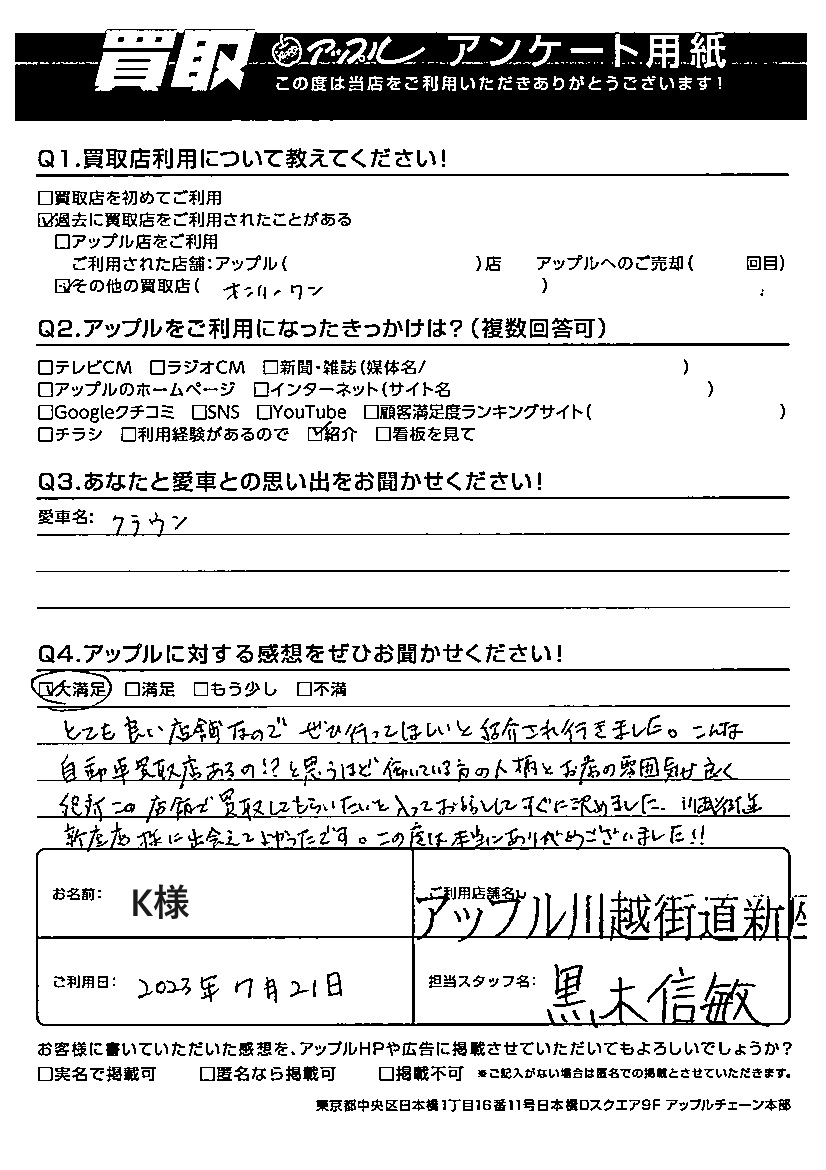 買取 アップル アンケート用紙
この度は当店をご利用いただきありがとうございます!
Q1.買取店利用について教えてください!
□買取店を初めてご利用
☑過去に買取店をご利用されたことがある
□アップル店をご利用
ご利用された店舗:アップル( )店 アップルへのご売却( 回目)
☑その他の買取店( オンリーワン )
Q2.アップルをご利用になったきっかけは?(複数回答可)
□テレビCM □ラジオCM □新聞・雑誌(媒体名/ )
□アップルのホームページ □インターネット(サイト名 )
□Googleクチコミ □SNS □YouTube □顧客満足度ランキングサイト( )
□チラシ □利用経験があるので ☑紹介 □看板を見て
Q3.あなたと愛車との思い出をお聞かせください!
愛車名: クラウン
Q4.アップルに対する感想をぜひお聞かせください!
☑大満足 □満足 □もう少し □不満
とても良い店舗なので ぜひ行ってほしいと紹介され行きました。こんな
自動車買取店あるの!?と思うほど働いている方の人柄とお店の雰囲気が良く
絶対この店舗で買取してもらいたいと入ってお話しして すぐに決めました。川越街道
新座店様に出会えてよかったです。この度は本当にありがとうございました!!
お名前: K様
ご利用店舗名:
アップル川越街道新座
ご利用日: 2023年7月21日
担当スタッフ名: 黒木信敏
お客様に書いていただいた感想を、アップルHPや広告に掲載させていただいてもよろしいでしょうか?
□実名で掲載可 □匿名なら掲載可 □掲載不可 ※ご記入がない場合は匿名での掲載とさせていただきます。
東京都中央区日本橋1丁目16番11号日本橋Dスクエア9F アップルチェーン本部